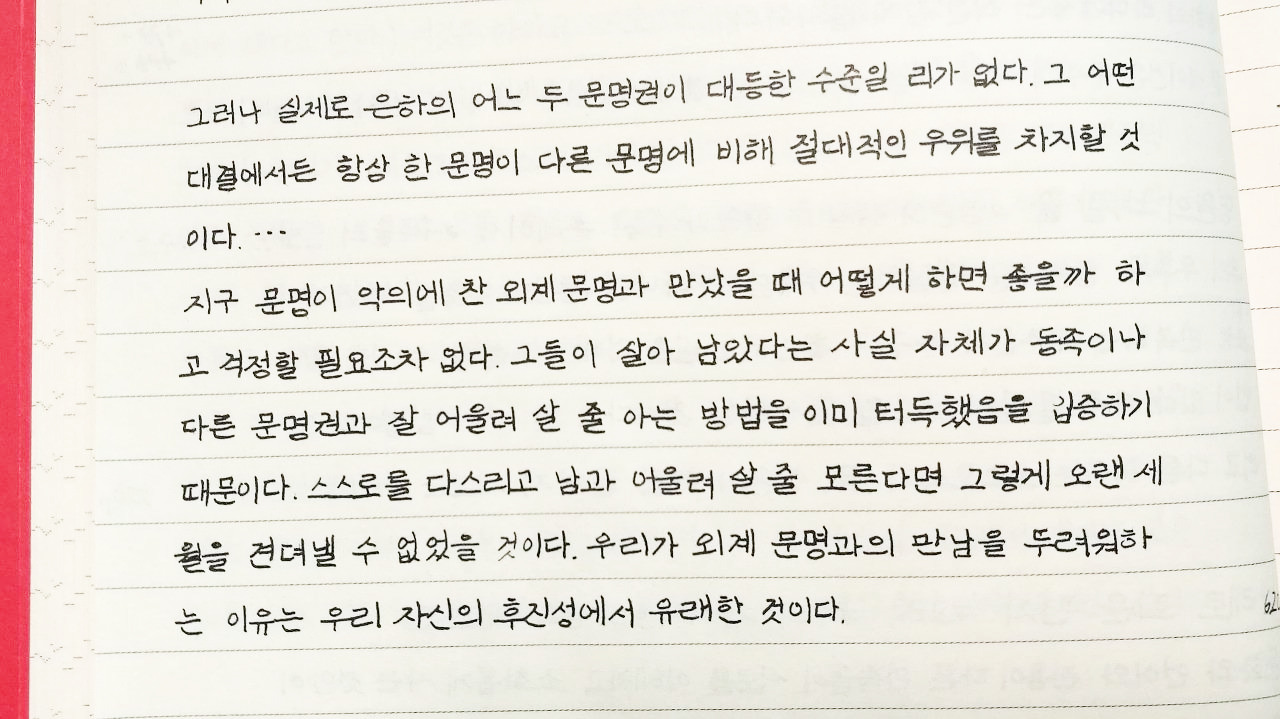 그러나 실제로 은하의 어느 두 문명권이 대등한 수준일 리가 없다. 그 어떤
대결에서든 항상 한 문명이 다른 문명에 비해 절대적인 우위를 차지할 것
이다. …
지구 문명이 악의에 찬 외계 문명과 만났을 때 어떻게 하면 좋을까 하
고 걱정할 필요조차 없다. 그들이 살아 남았다는 사실 자체가 동족이나
다른 문명권과 잘 어울려 살 줄 아는 방법을 이미 터득했음을 입증하기
때문이다. 스스로를 다스리고 남과 어울려 살 줄 모른다면 그렇게 오랜 세
월을 견뎌낼 수 없었을 것이다. 우리가 외계 문명과의 만남을 두려워하
는 이유는 우리 자신의 후진성에서 유래한 것이다.